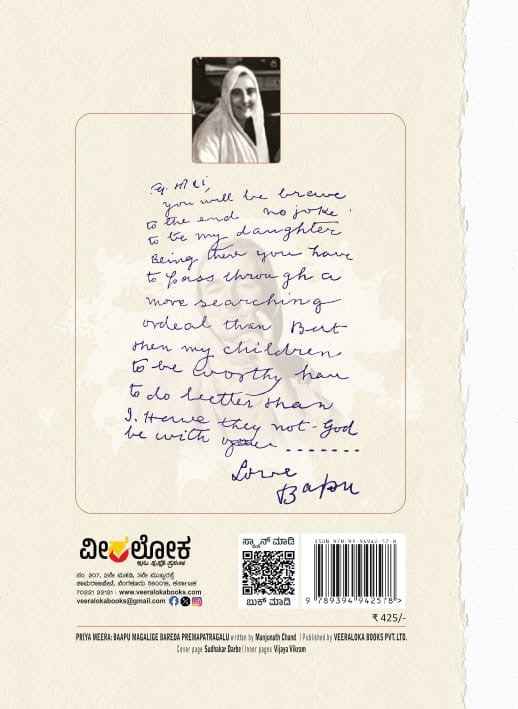 you will be brave
to the end no joke
to be my daughter
Being there you have
to pass through a
more searching
ordeal than But
then my children
to be worthy have
to do better than
I. Have they not - God
be with you .......
Love
Bapu
ವೀರಲೋಕ
ನಂ. 207, 2ನೇ ಮಹಡಿ, 3ನೇ ಮುಖ್ಯರಸ್ತೆ
ಚಾಮರಾಜಪೇಟೆ, ಬೆಂಗಳೂರು 560018, ಕರ್ನಾಟಕ
70221 22121 • www.veeralokabooks.com
veeralokabooks@gmail.com
ಸ್ಕ್ಯಾನ್ ಮಾಡಿ
ಬುಕ್ ಮಾಡಿ
9 789394 942578 >
₹ 425/-
PRIYA MEERA: BAAPU MAGALIGE BAREDA PREMAPATRAGALU written by Manjunath Chand | Published by VEERALOKA BOOKS PVT. LTD.
Cover page Sudhakar Darbe | Inner pages Vijaya Vikram